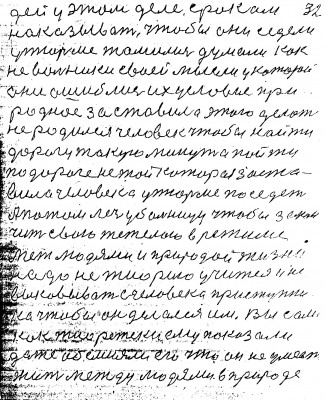 дей у этом деле, сроком 32
наказыват, чтобы они седели
у тюрме томились думали как
не воиники своей мысли у которай
они ошиблис их условие при
родное заставила этого делат
не родился человек чтобы найти
дорогу такую минута пойти
по дороге не той которая заста-
вила человека у тюрме поседет
А потом леч у болницу чтобы закон
чит свою тежолою в режиме.
Мет людями и природой жизни
надо не тюрмою учится и не
выковыват с человека приступни
ка чтобы он делался им. Вы сами
как творетеки ему показали
даже обсмияли его что он не умеет
жит между людями в природе